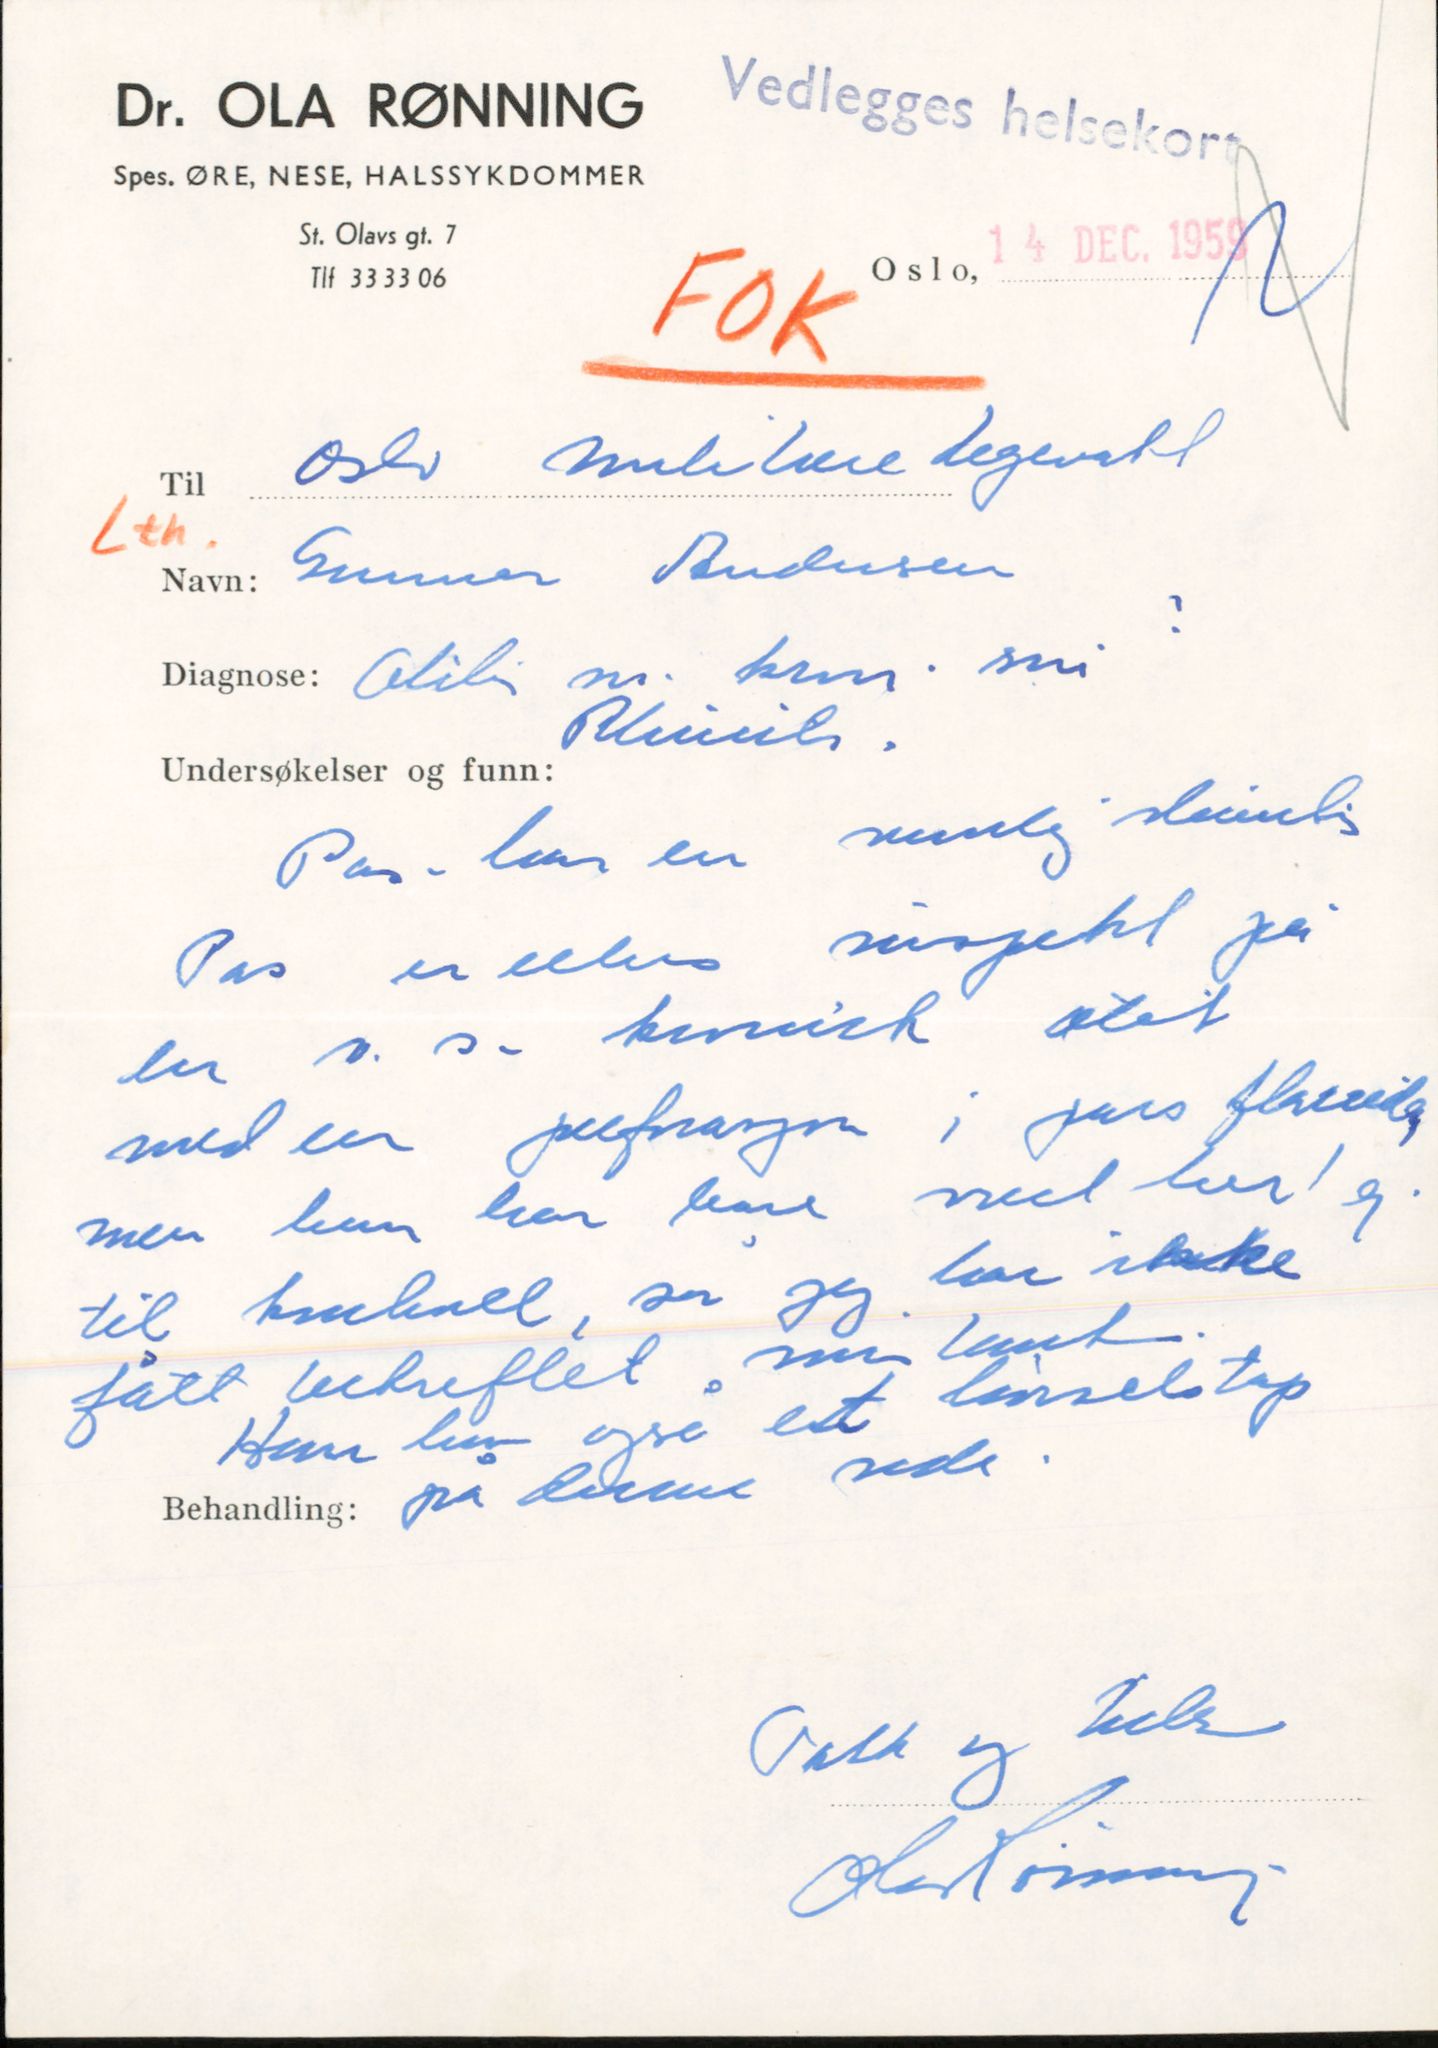 Dr. OLA RØNNING
Vedlegges helsekort
Spes. ØRE, NESE, HALSSYKDOMMER
St. Olavs gt. 7
Tlf 33 33 06
Oslo, 14 DEC. 1959
FOK
Til Oslo militære legevakt
Lth.
Navn: Gunnar Andersen
Diagnose: Otitis m. kron. sin ?
Rhinitis.
Undersøkelser og funn:
Pas. har en rhinitis
Pas er ellers suspekt på
en o. s. kronisk otit
med en perforasjon i pars flaccida,
men han har bare vært her
til kontroll, så jeg har ikke
fått bekreftet min
Han har også et hørselstap
på denne side.
Behandling:
Takk og hels
Ola Rønning